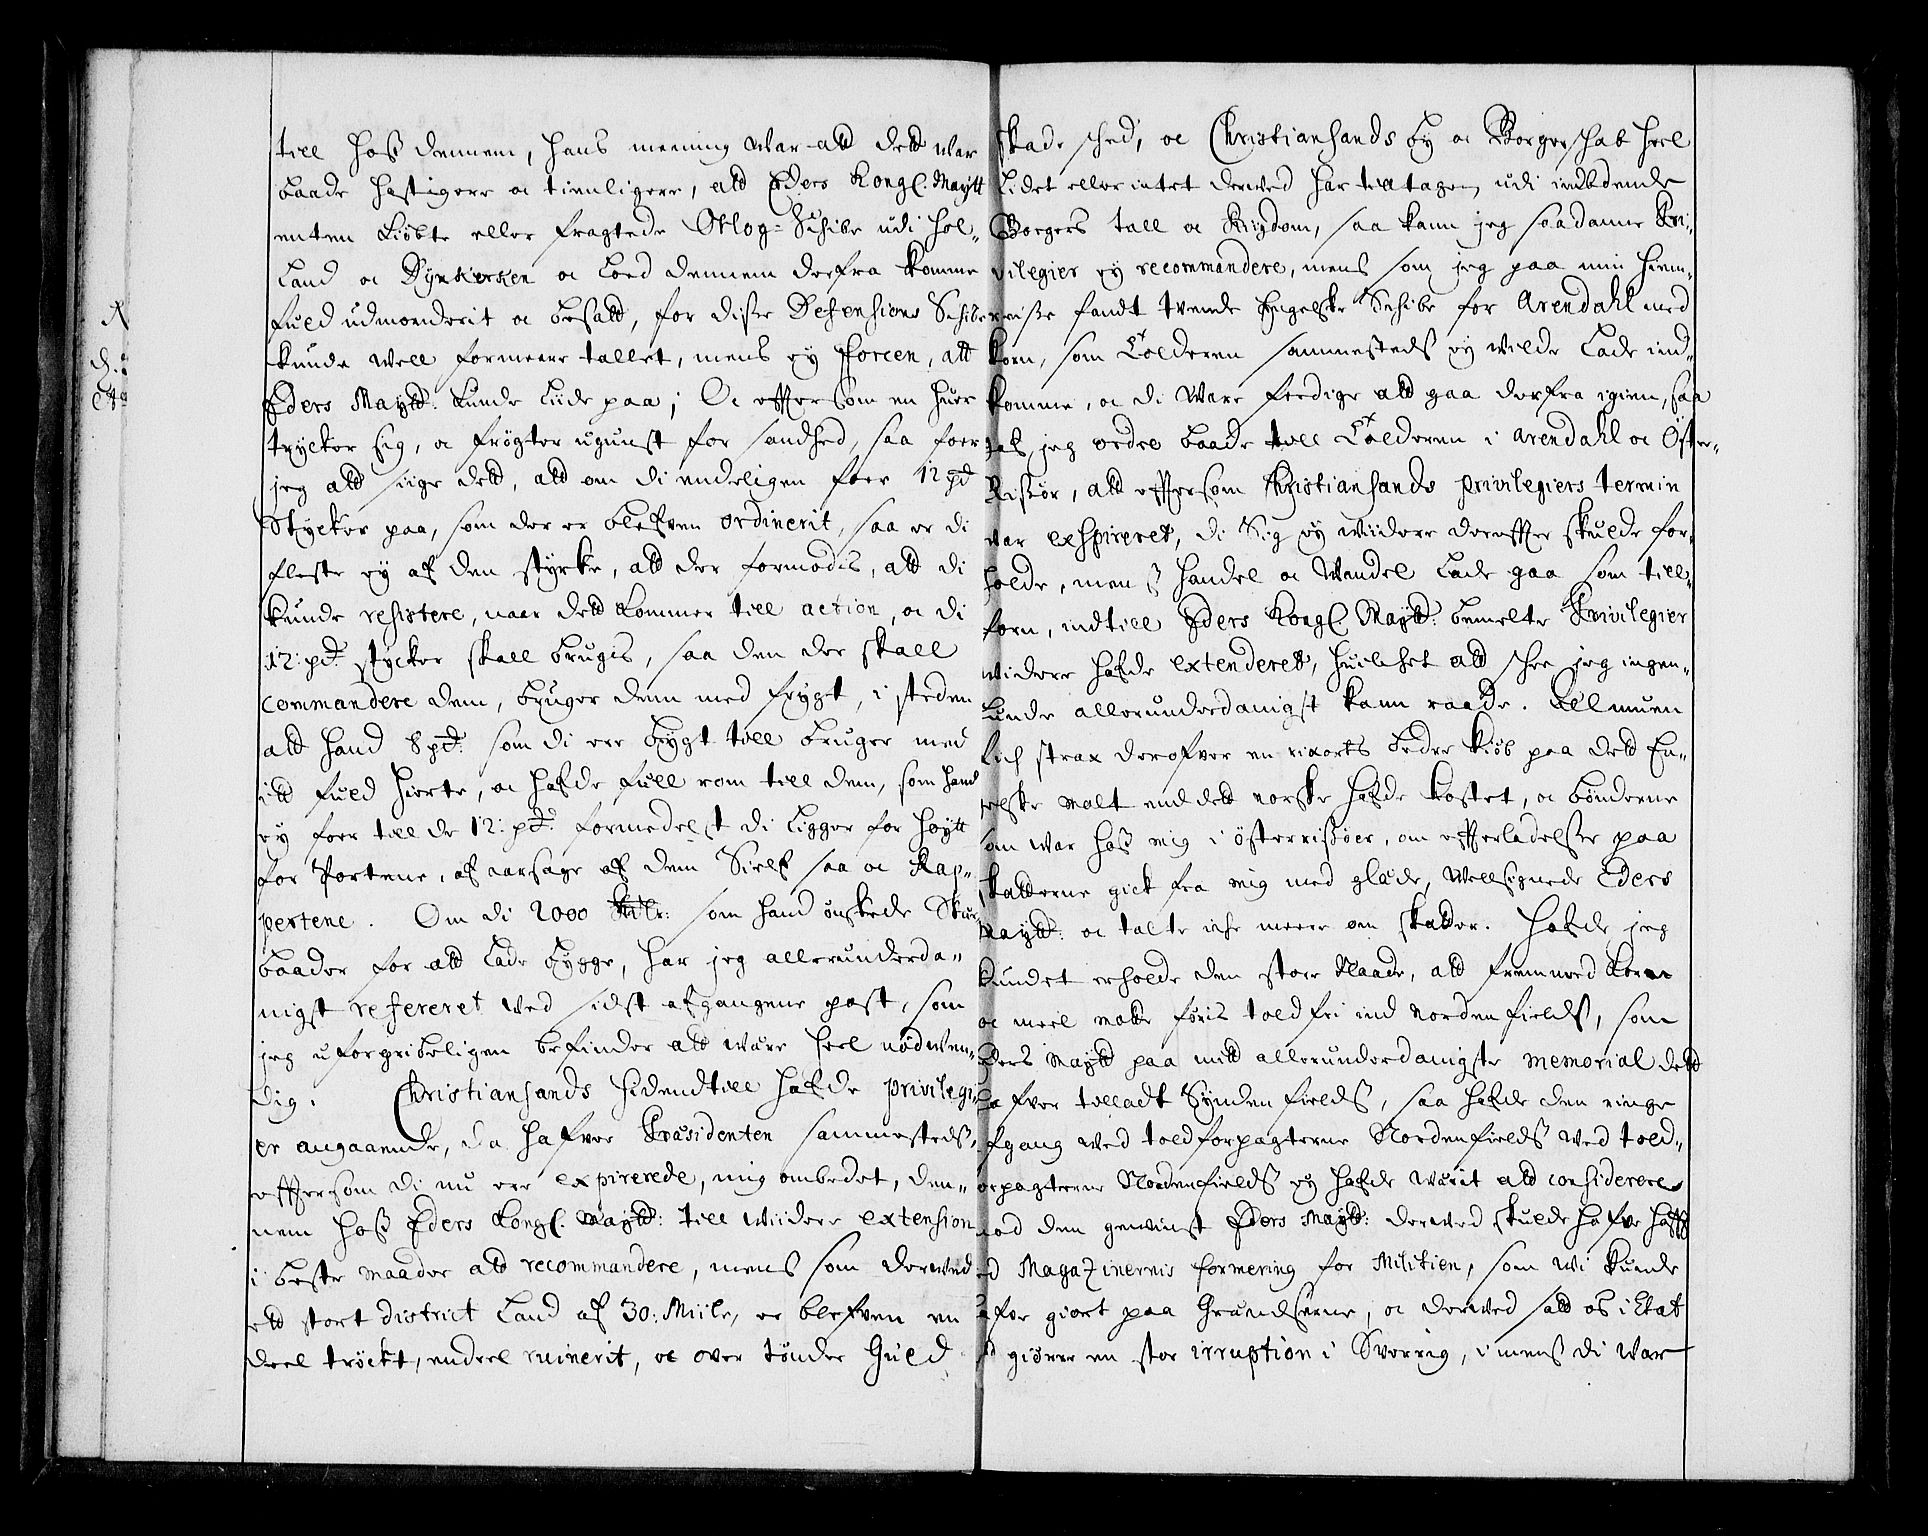 till hoss dennem, hans meening war att dett war
baade hastigere oc tienligere, att Eders Kongl. Maytt
enten kiöbte eller fragtede Orlog-Schibe udi Hol-
land oc Dynkerken oc lod dennem derfra komme
fuld udmonderit oc besatt, for disse Defensions Schibe
kunde well formeere tallet, mens ey forcen, att
Eders Maytt. kunde liide paa; Oc effter som en huer
trycker sig, oc frögter ugunst for sandhed, saa foer
jeg att siige dett, att om di endeligen foer 12 pd
Stycker paa, som der er blefven ordinerit, saa er di
fleste ey af den styrke, att der formodis, att di
kunde resistere, naar dett kommer till action, oc di
12: pd. stycker skall brugis, saa den der skall
commandere dem, bruger dem med frygt, i steden
att hand 8 pd. som di ere bygt till bruger med
itt fuld hierte, oc hafde full rom till dem, som hand
ey foer till de 12: pd. formedelst di ligger for höytt
for Portene, af aarsage af dem Sielf saa oc Rap-
pertene. Om di 2000 som hand önskede Skær
baader for att lade bygge, har jeg allerunderda-
nigst refereret ved sidst afgangene post, som
jeg uforgribeligen befinder att være heel nödven-
dig. Christiansands hidendtill hafde privilegi-
er angaaende, da hafver Præsidenten sammesteds,
effter som di nu ere expirerede, mig ombedet, den-
nem hoss Eders Kongl. Maytt: till wiidere extension
i beste maader att recommandere, mens som derved
ett stort district land af 30: Miile, er blefven en
deel tröckt, endeel ruinerit, oc over tönder Guld
skade sched, oc Christiansands by oc Borgerschab heel
lidet eller intet derved har tiltagen, udi
Borgers tall oc Rigdom, saa kann jeg saadanne Pri-
vilegier ey recommandere, mens som jeg paa min hiem-
reisse fandt tvende Engelske Schibe for Arendahl med
korn, som Tolderen sammesteds ey wilde lade ind-
komme, oc di ware ferdige att gaa derfra igien, saa
gaf jeg ordre baade till Tolderen i Arendahl oc Öster-
Rissör, att effter som Christiansands privilegiers termin
var exspireret, di Sig ey wiidere dereffter skulde for-
holde, men ss handel oc wandel lade gaa som till-
forn, indtill Eders Kongl Maytt. bemelte Privilegier
widere hafde extenderet, huilchet att schee jeg ingen-
lunde allerunderdanigst kann raade. Allmuen
fich strax derofver en rixorts bedre kiöb paa dett En-
gelske malt end dett norske hafde kostet, oc bönderne
som war hoss mig i österrissöer, om efferladelsse paa
skatterne gick fra mig med glæde, wellsignede Eders
Maytt: oc talte iche meere om skatter. Hafde jeg
kundet erholde den store Naade, att fremmed korn
oc meel motte föris toldfri ind Nordenfields, som
Eders Maytt paa mitt allerunderdanigste memorial dett
hafver tilladt Syndenfields, saa hafde den ringe
afgang ved toldforpagterne Nordenfields ved told-
forpagterne Nordenfields ey hafde wærit att considerere
mod den gewinst Eders Maytt: derved skulde hafve hafft
ved Magazinernis formering for Militien, som wi kunde
hafve giort paa Grændserne, oc derved satt os i Etat
att giörre en stor irruption i Sverrig, imens di war